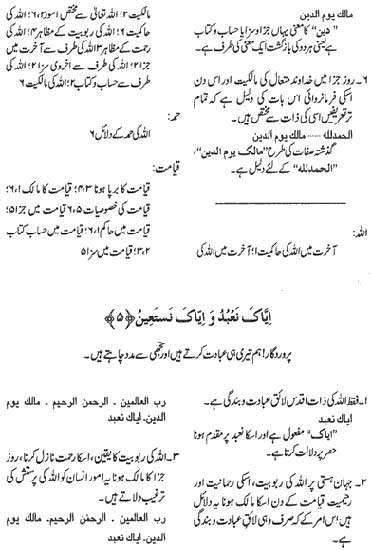 مالك يوم الدين
"دین" کا معنی یہاں جزا و سزا یا حساب و کتاب
ہے یعنی ہر دو کی بازگشت ایک معنی کی طرف ہے۔
۶۔ روز جزا میں خداوند متعال کی مالکیت اور اس دن
اسکی فرمانروائی اس بات کی دلیل ہے کہ تمام
تر تعریفیں اسی کی ذات سے مختص ہیں۔
الحمدللہ ...... مالك يوم الدين
گذشتہ صفات کی طرح "مالك يوم الدين"،
"الحمدلله" کے لئے دلیل ہے۔
اللہ:
آخرت میں اللہ کی حاکمیت ۱؛ آخرت میں اللہ کی
مالکیت ۲؛ اللہ تعالیٰ سے مختص امور ۲، ۶؛ اللہ کی
حاکمیت ۶؛ اللہ کی ربوبیت کے مظاہر ۴؛ اللہ کی
رحمت کے مظاہر ۳؛ اللہ کی طرف سے آخرت میں
جزا ۲؛ اللہ کی طرف سے اخروی سزا ۲؛ اللہ کی
طرف سے حساب و کتاب ۲؛ اللہ کی مالکیت ۶
حمد:
اللہ کی حمد کے دلائل ۶
قیامت:
قیامت کا برپا ہونا ۳،۴؛ قیامت کا مالک ۱،۶؛
قیامت کی خصوصیات ۵،۶؛ قیامت میں جزا ۵؛
قیامت میں حاکم ۱،۶؛ قیامت میں حساب کتاب
۲،۳؛ قیامت میں سزا ۵
اِيَّاكَ نَعْبُدُ وَ اِيَّاكَ نَسْتَعِينُ ﴿۵﴾
پروردگار! ہم تیری ہی عبادت کرتے ہیں اور تجھی سے مدد چاہتے ہیں۔
۱۔ فقط اللہ کی ذات اقدس لائق عبادت و بندگی ہے۔
اياك نعبد
"اياك" مفعول ہے اور اسکا نعبد پر مقدم ہونا
حصر پر دلالت کرتا ہے۔
۲۔ جہان ہستی پر اللہ کی ربوبیت، اسکی رحمانیت اور
رحیمیت قیامت کے دن اسکا مالک ہونا یہ دلائل
ہیں اس امر کے کہ صرف وہی لائق عبادت و بندگی
ہے۔
رب العالمين ۔ الرحمن الرحيم ۔ مالك يوم
الدين۔ اياك نعبد
۳۔ اللہ کی ربوبیت کا یقین، اسکا رحمت نازل کرنا، روز
جزا کا مالک ہونا یہ امور انسان کو اللہ کی پرستش کی
ترغیب دلاتے ہیں۔
رب العالمين ۔ الرحمٰن الرحيم ۔ مالك يوم
الدين۔ اياك نعبد